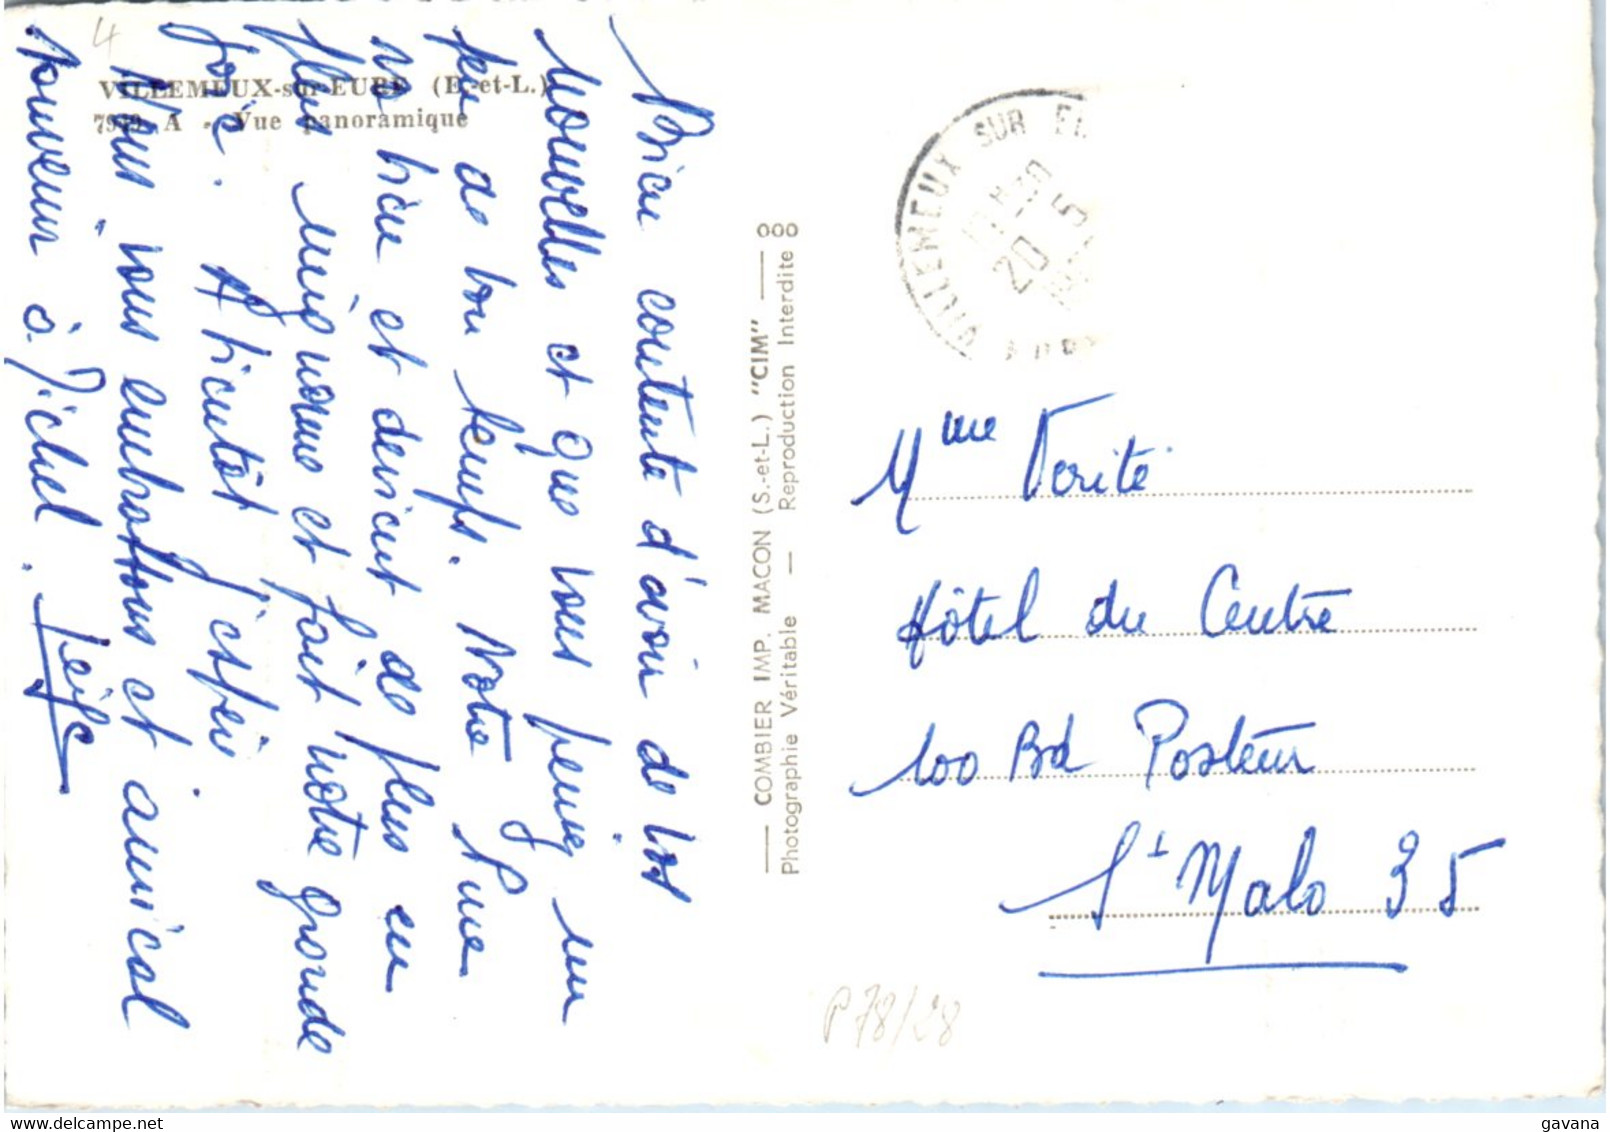 4
VILLEMEUX-sur-EURE (E.-et-L.)
A - Vue panoramique
Bien contente d'avoir de vos
Nouvelles et que vous peniez un
peu de bon temps. Notre
va bien et devient de plus en
plus mignonne et fait notre grande
joie. A bientôt j'espère.
Nous vous embrassons et amical
souvenir à Michel.
COMBIER IMP. MACON (S.-et-L.) "CIM"
Photographie Véritable — Reproduction Interdite
VILLEMEUX SUR E
20 5
Mme Verité
Hôtel du Centre
100 Bd Pasteur
St Malo 35
P78/28
gavana